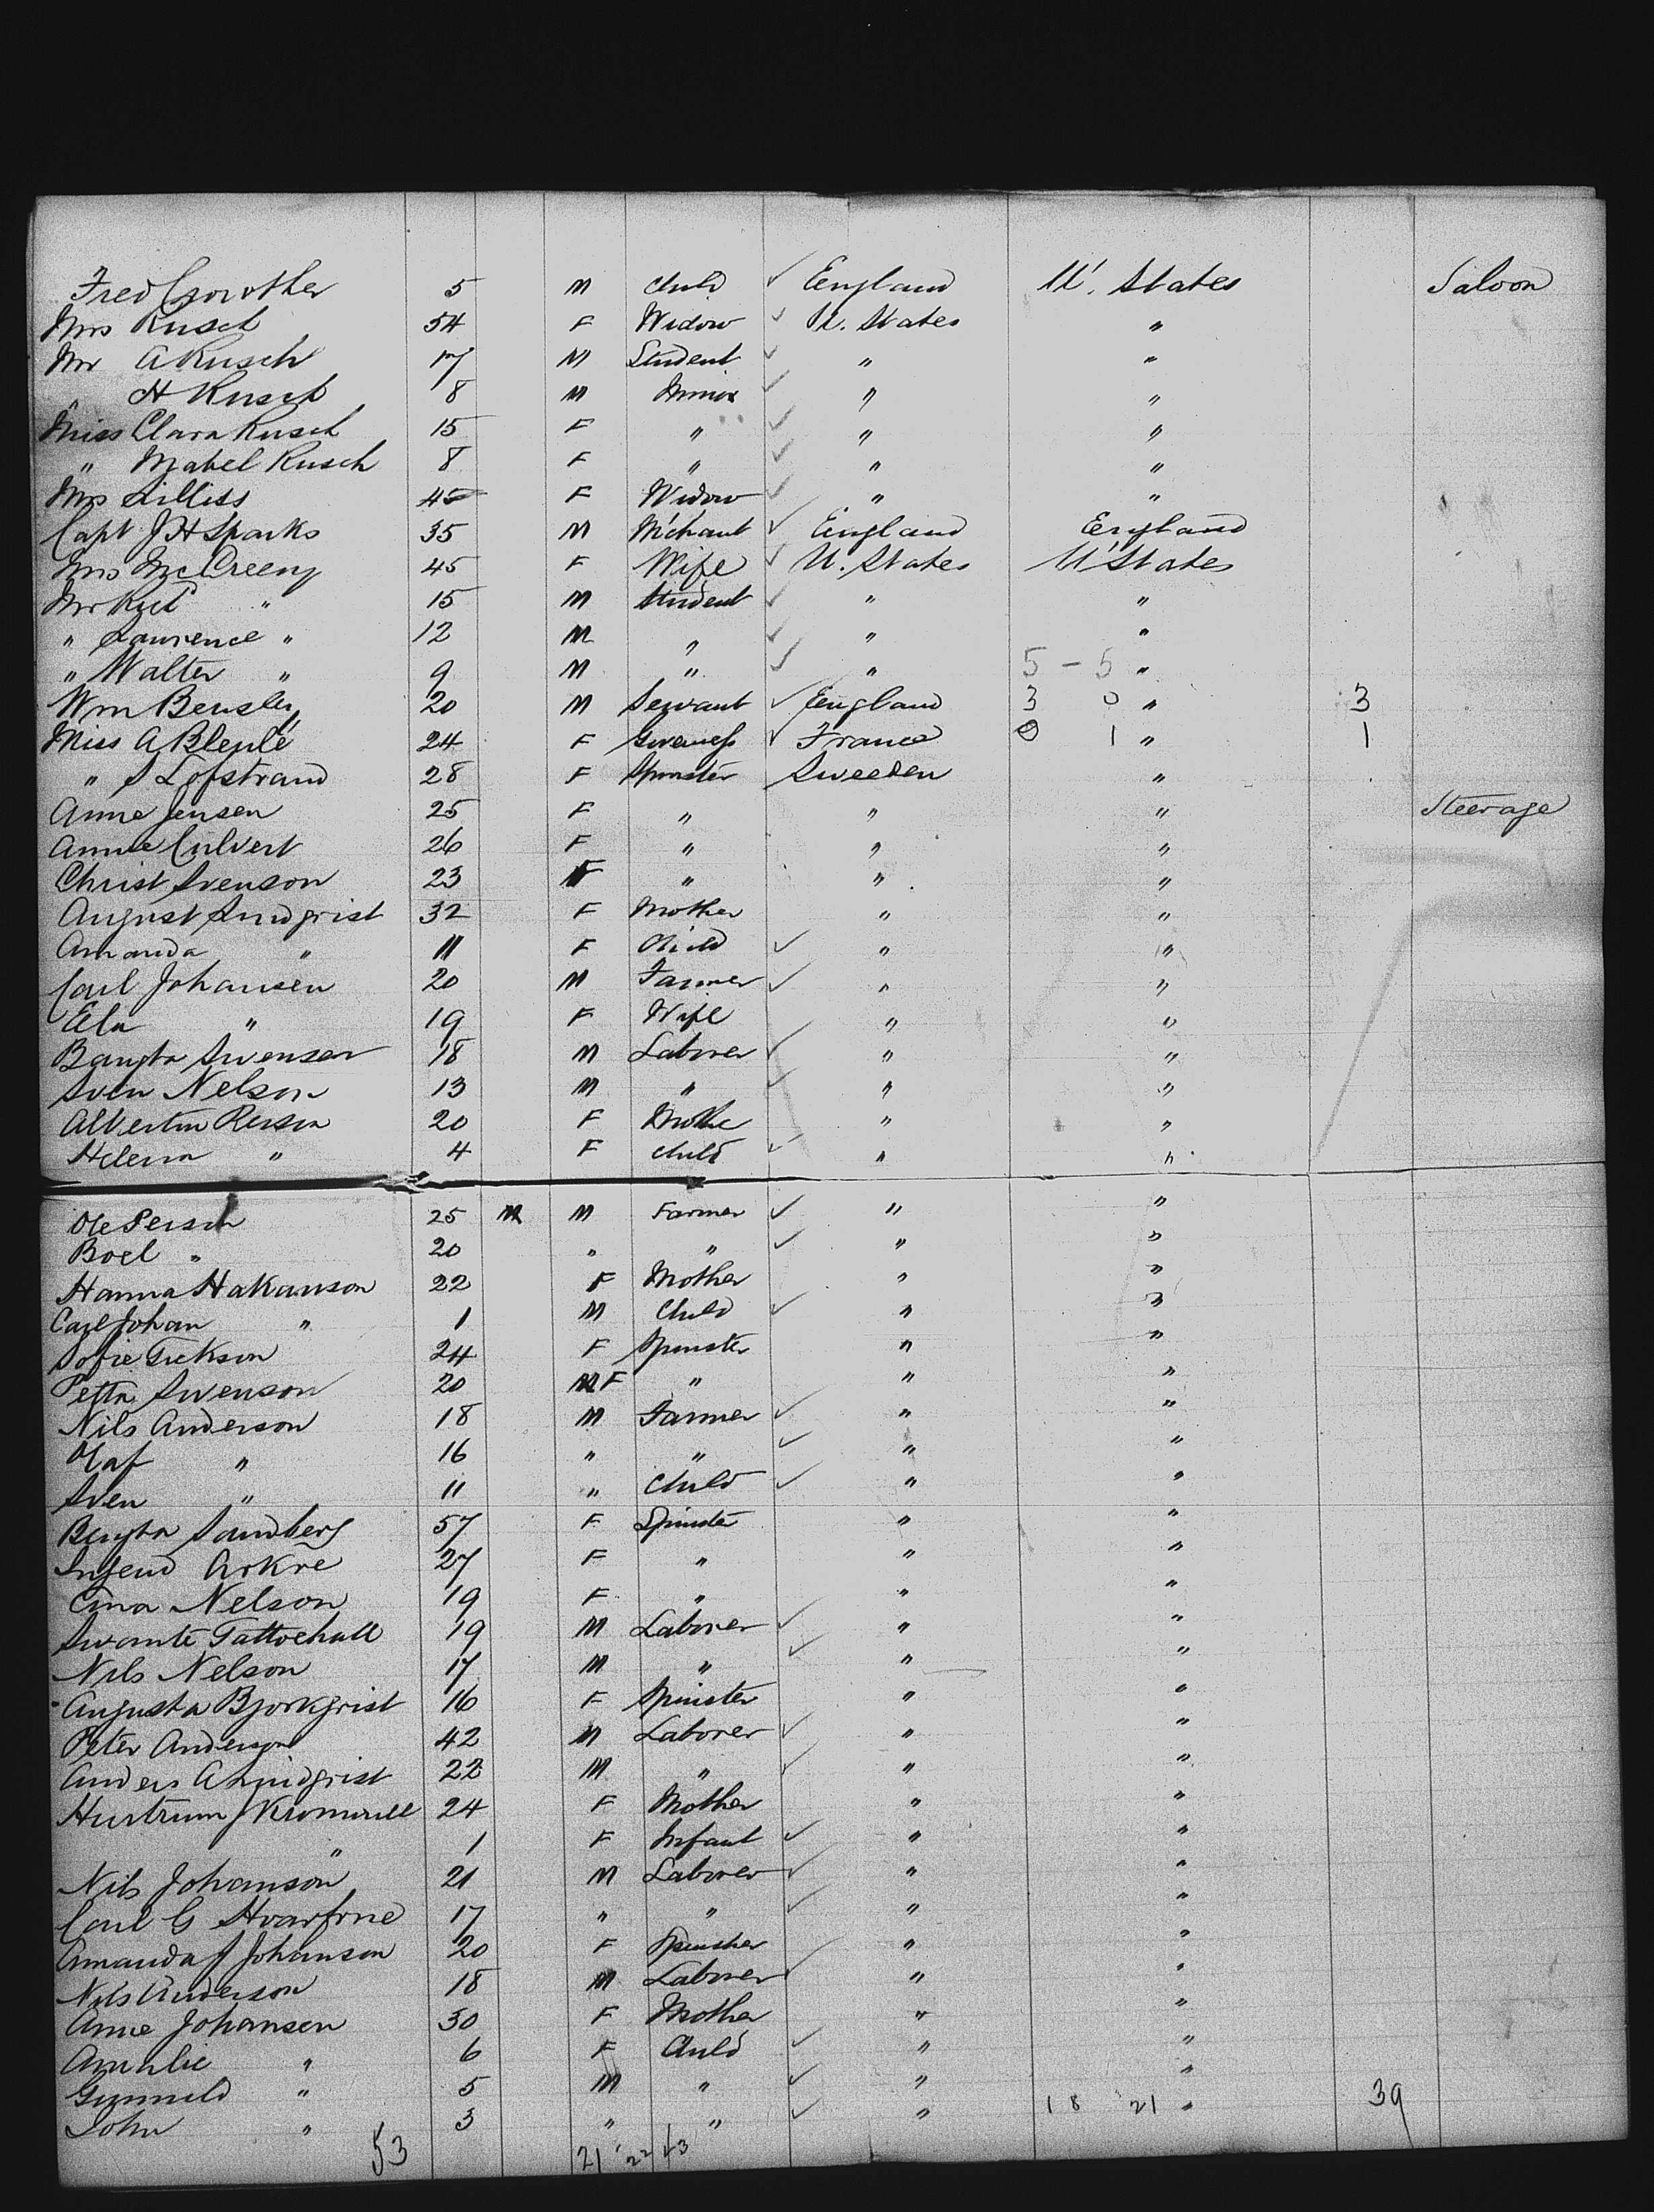 Fred Crowther 5 M Child ✓ England U. States Saloon
Mrs Rusch 54 F Widow ✓ U. States "
Mr A Rusch 17 M Student ✓ " "
" H Rusch 8 M Minor ✓ " "
Miss Clara Rusch 15 F " ✓ " "
" Mabel Rusch 8 F " ✓ " "
Mrs Lilliss 45 F Widow ✓ " "
Capt J H Sparks 35 M M'chant ✓ England England
Mrs McCreery 45 F Wife ✓ U. States U States
Mr " 15 M Student ✓ " "
" Lawrence " 12 M " ✓ " "
" Walter " 9 M " ✓ " 5 - 5 "
Wm Bensley 20 M Servant ✓ England 3 0 " 3
Miss A 24 F Governess ✓ France 0 1 " 1
" S Lofstrand 28 F Spinster Sweeden "
Anna Jensen 25 F " " " Steerage
Annie Culvert 26 F " " "
Christ Svenson 23 F " " "
August Sundgrist 32 F Mother " "
Amanda " 11 F Child ✓ " "
Carl Johansen 20 M Farmer ✓ " "
Ela " 19 F Wife " "
Bangta Swensen 18 M Laborer ✓ " "
Sven Nelson 13 M " ✓ " "
Albertin Person 20 F Mother " "
Helena " 4 F Child ✓ " "
Ole Person 25 M M Farmer ✓ " "
Boel " 20 " " ✓ " "
Hanna Hakanson 22 F Mother " "
Carl Johan " 1 M Child ✓ " "
Sofie 24 F Spinster " "
Petta Swenson 20 F " " "
Nils Anderson 18 M Farmer ✓ " "
Olaf " 16 " " ✓ " "
Sven " 11 " Child ✓ " "
Bengta Sandberg 57 F Spinster " "
Ingend Arkre 27 F " " "
Nelson 19 F " " "
Swante Tattoehall 19 M Laborer ✓ " "
Nils Nelson 17 M " ✓ " "
Augusta Bjorkgrist 16 F Spinster " "
Peter Anderson 42 M Laborer ✓ " "
Anders A Lindgrist 22 M " ✓ " "
24 F Mother " "
" 1 F Infant ✓ " "
Nils Johanson 21 M Laborer ✓ " "
Carl G 17 " " ✓ " "
Amanda J Johanson 20 F Spinster " "
Nils Anderson 18 M Laborer ✓ " "
Anne Johansen 30 F Mother " "
Amalie " 6 F Child ✓ " "
Gunnild " 5 M " ✓ " "
John " 3 " " ✓ " 18 21 " 39
53 21 22 13